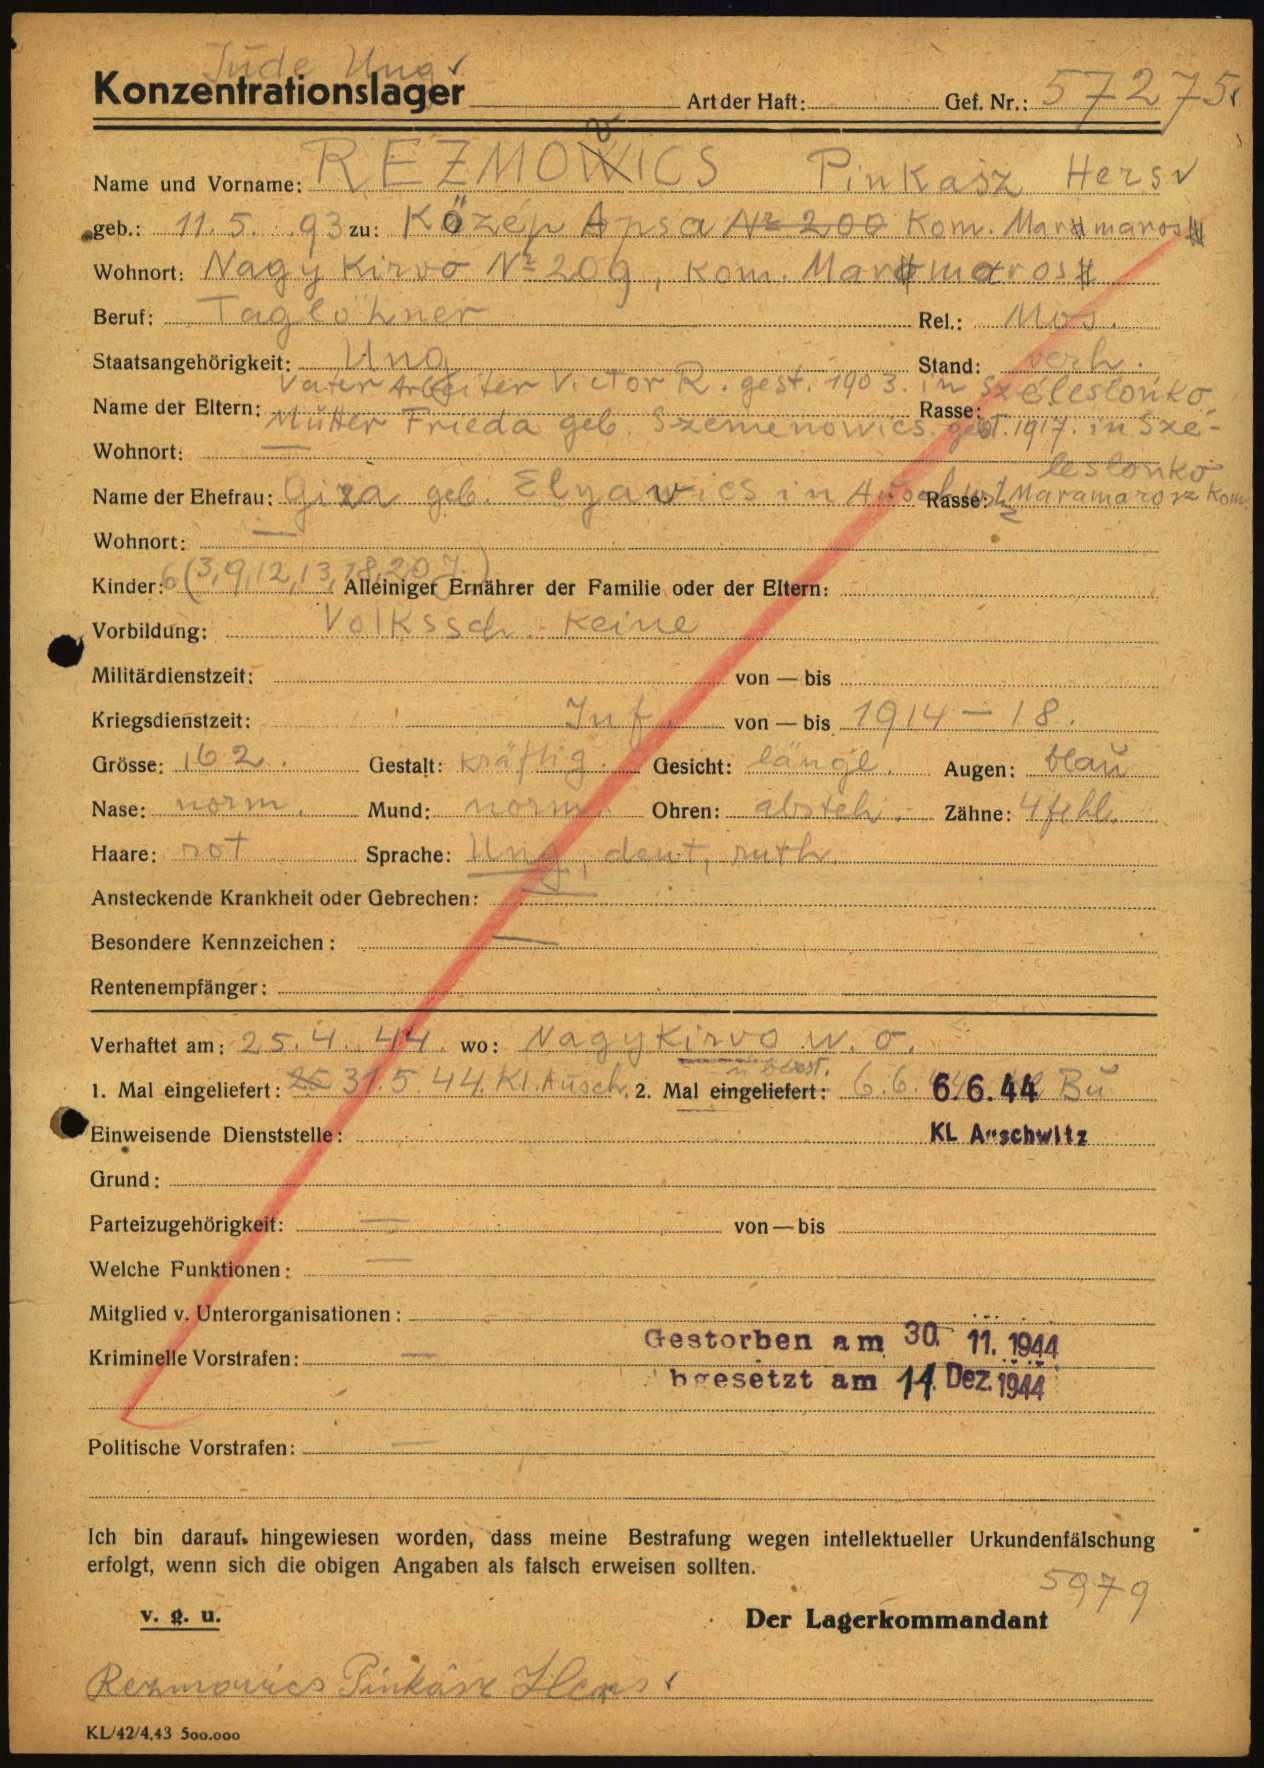 Jude Ung.
Konzentrationslager Art der Haft: Gef. Nr.: 57275
Name und Vorname: REZMOWICS Pinkasz Hers
geb.: 11.5. 93 zu: Közép Apsa Nr 200 Kom. Maramaros
Wohnort: Nagy Kirvo Nr 209, Kom. Maramaros
Beruf: Taglöhner Rel.: Mos.
Staatsangehörigkeit: Ung Stand: verh.
Vater Arbeiter Victor R. gest. 1903. in Szeleslonko,
Name der Eltern: Rasse:
Mutter Frieda geb. Szemenowics gest. 1917. in Sze-
Wohnort: — leslonko
Name der Ehefrau: Giza geb. Elyawics in Rasse: Maramarosz Kom.
Wohnort: —
Kinder: 6 (3,9,12,13,18,20 J.) Alleiniger Ernährer der Familie oder der Eltern:
Vorbildung: Volkssch. Keine
Militärdienstzeit: von — bis
Kriegsdienstzeit: Inf. von — bis 1914 — 18.
Grösse: 162. Gestalt: kräftig. Gesicht: längl. Augen: blau
Nase: norm. Mund: norm. Ohren: absteh. Zähne: 4 fehl.
Haare: rot Sprache: Ung, deut, ruth.
Ansteckende Krankheit oder Gebrechen: —
Besondere Kennzeichen: —
Rentenempfänger:
Verhaftet am: 25.4. 44. wo: Nagy Kirvo w. o.
u überst.
1. Mal eingeliefert: 25 31.5.44. Kl. Ausch. 2. Mal eingeliefert: 6.6. 6.6.44 Bu
Einweisende Dienststelle: KL Auschwitz
Grund:
Parteizugehörigkeit: — von — bis
Welche Funktionen: —
Mitglied v. Unterorganisationen:
Gestorben am 30. 11. 1944
Kriminelle Vorstrafen: —
bgesetzt am 14. Dez. 1944
Politische Vorstrafen: —
Ich bin darauf hingewiesen worden, dass meine Bestrafung wegen intellektueller Urkundenfälschung
erfolgt, wenn sich die obigen Angaben als falsch erweisen sollten.
5979
v. g. u. Der Lagerkommandant
Rezmowics Pinkász Hers
KL/42/4.43 500.000